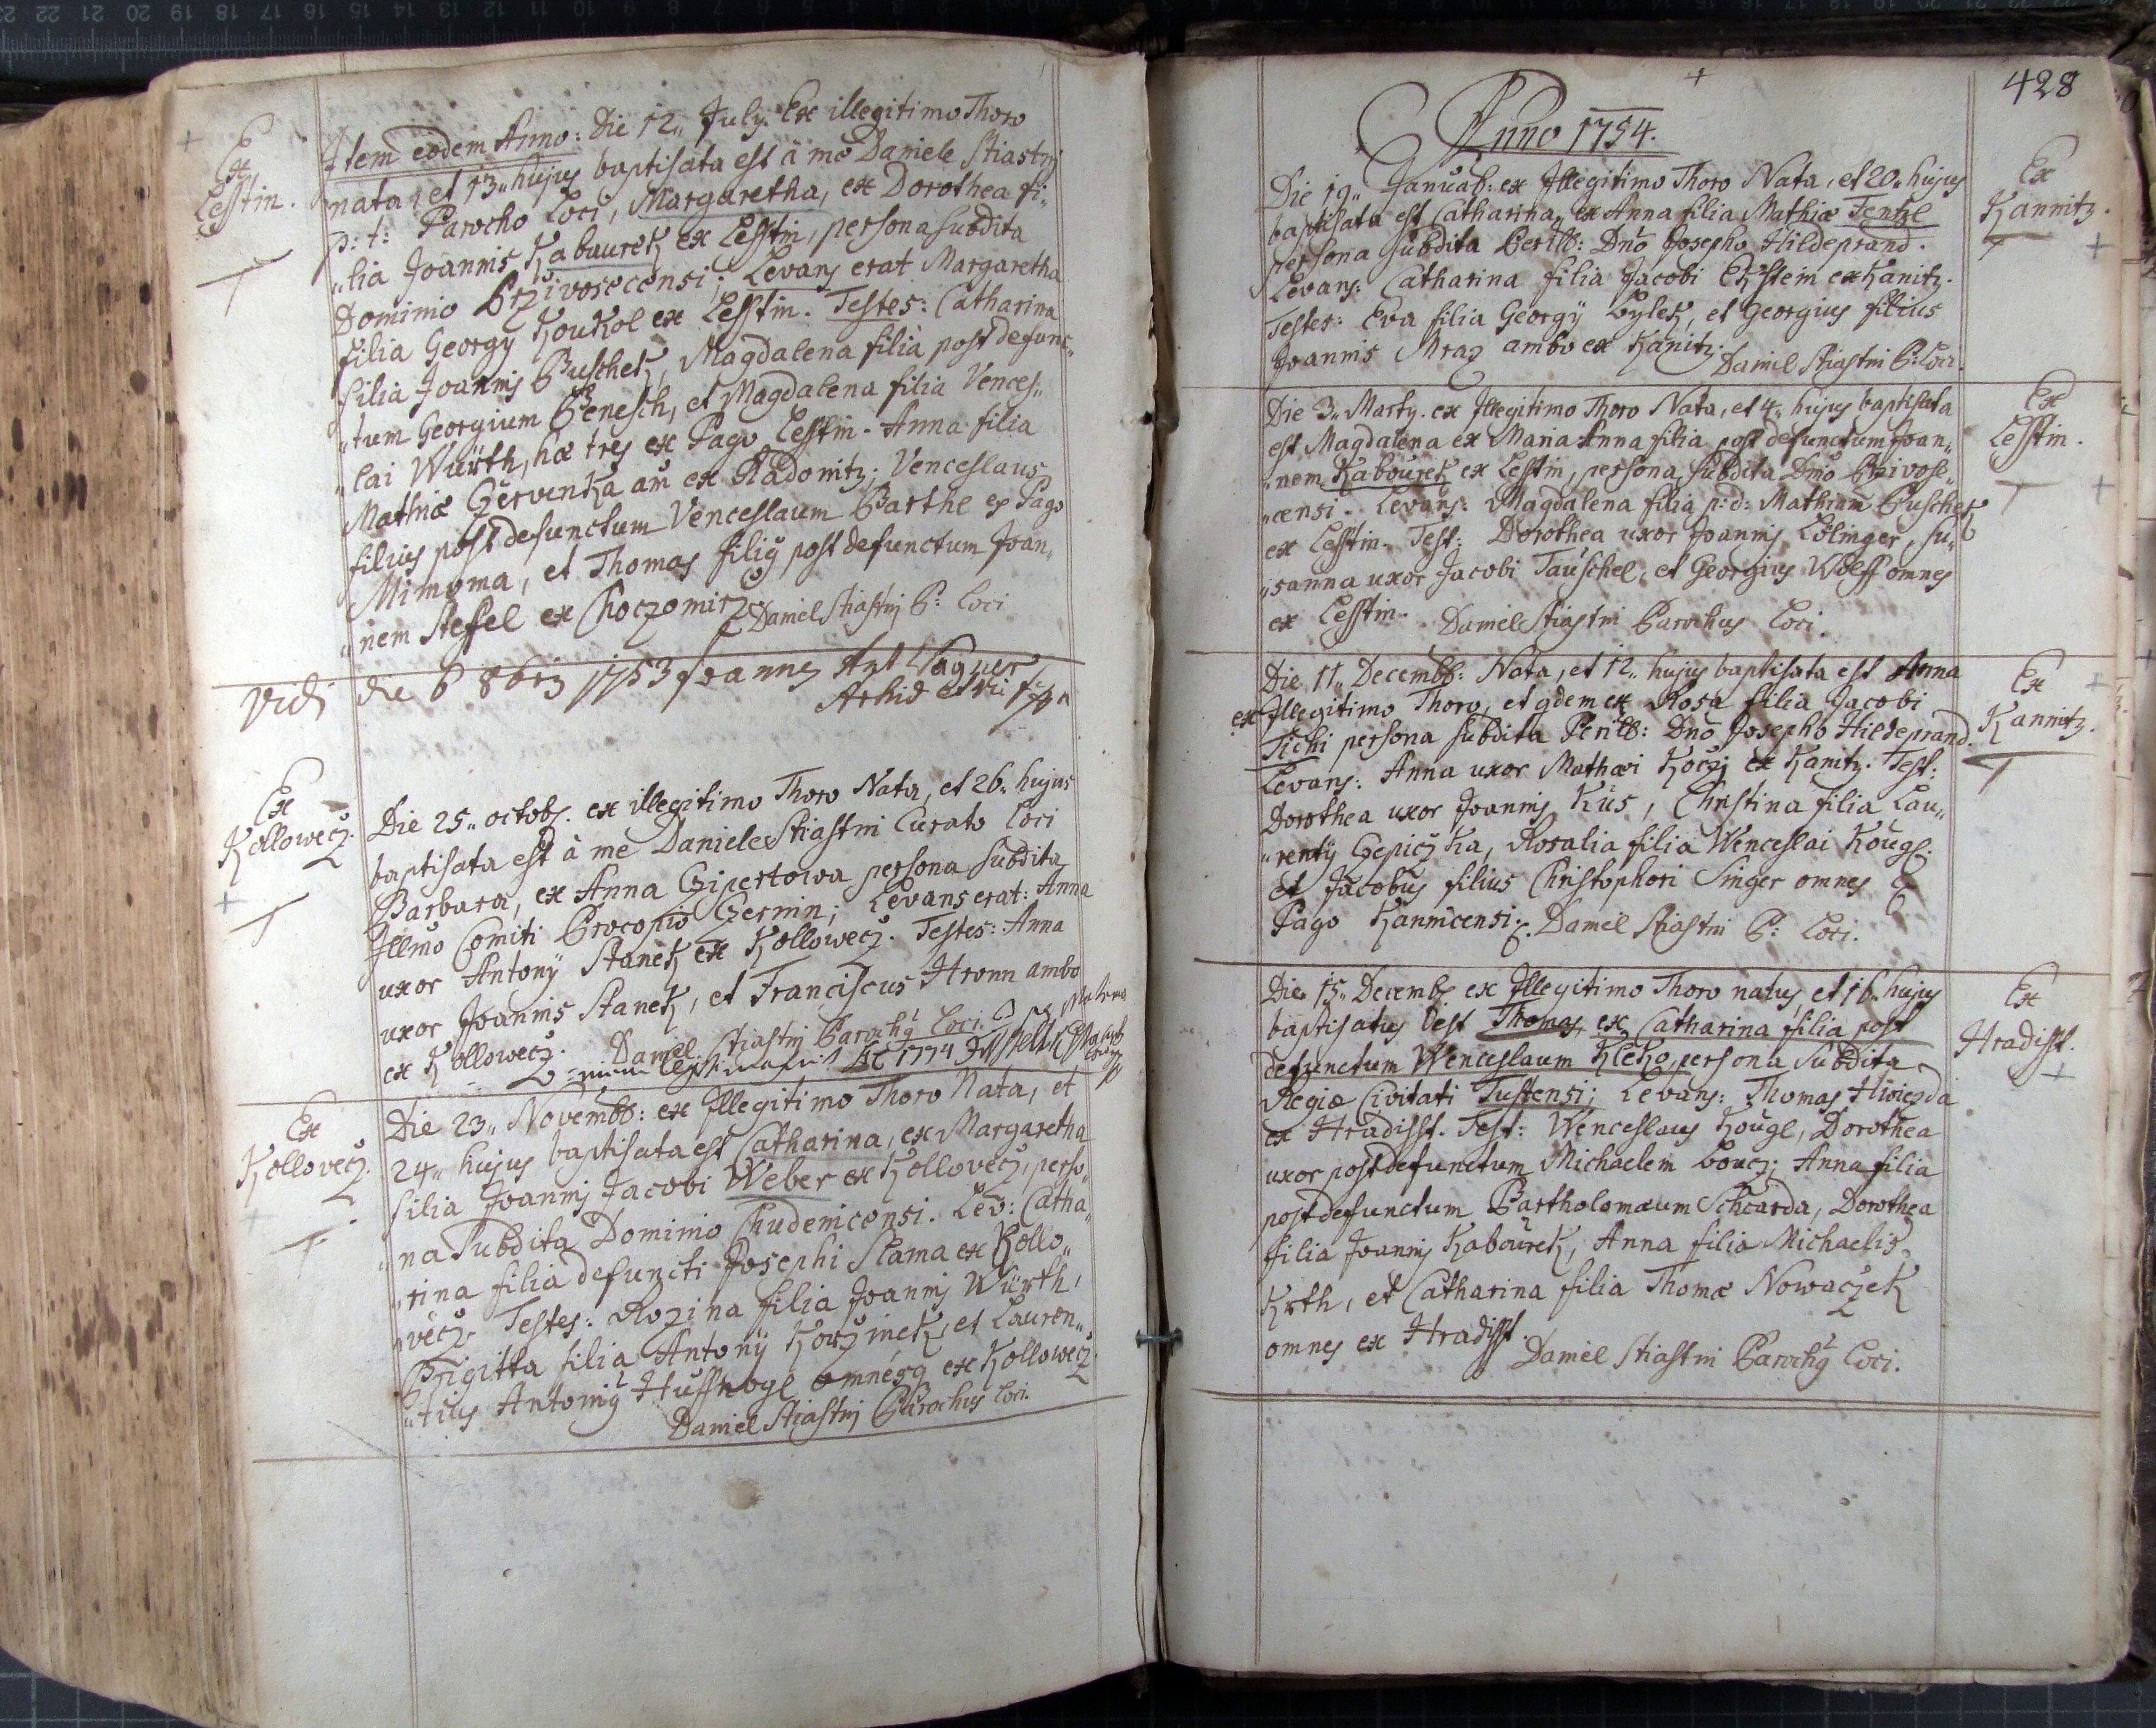 Ex
Lesstin.
Item eodem Anno: Die 12,, July. Ex illegitimo Thoro
nata, et 13,, hujus baptisata est à me Daniele Stiastnj
p: t: Parocho Loci, Margaretha, ex Dorothea fi,,
,,lia Joannis Kabaurek ex Lesstin, persona subdita
Dominio Przivosecensi; Levans erat Margaretha
filia Georgy Koukol ex Lesstin. Testes: Catharina
filia Joannis Buschek, Magdalena filia post defunc,,
,,tum Georgium Benesch, et Magdalena filia Vences,,
,,lai Würth, hæ tres ex Pago Lesstin. Anna filia
Mathiæ Czervenka ex Radonitz; Venceslaus
filius post defunctum Venceslaum Barthe ex Pago
Mimoma, et Thomas filiq post defunctum Joan,,
,,nem Steffel ex Choczomircz. Daniel Stiastnj P: Loci
Vidi die 6 8bris 1753 Joannes Ant Wagner
Ex
Kollowecz.
Die 25,, octobr. ex illegitimo Thoro Nata, et 26,, hujus
baptisata est à me Daniele Stiastni Curato Loci
Barbara, ex Anna Czipertowa persona subdita
Illmo Comiti Procopio Czernin; Levans erat: Anna
uxor Antonÿ Stanek ex Kollowecz. Testes: Anna
uxor Joannis Stanek, et Franciscus Hronn ambo
ex Kollowecz. Daniel Stiastnj Parochq Loci.
Ex
Kollovecz.
Die 23,, Novembr: ex Illegitimo Thoro Nata, et
24,, hujus baptisata est Catharina, ex Margaretha
filia Joannis Jacobi Weber ex Kollovecz, perso,,
,,na Subdita Dominio Chudenicensi. Lev: Catha,,
,,rina filia defuncti Josephi Slama ex Kollo,,
,,vecz. Testes: Rozina filia Joannis Würth,
Brigitta filia Antonÿ Korzinek, et Lauren,,
,,tius Antoniq Huffnogl omnesq ex Kollowecz.
Daniel Stiastnj Parochus Loci.
428
Anno 1754.
Die 19,, Januar: ex Illegitimo Thoro Nata, et 20,, hujus
baptisata est Catharina, ex Anna filia Mathiæ Fenzl
persona subdita Perill: Dnõ Josepho Hildeprand.
Levans: Catharina filia Jacobi Ekstein ex Kanitz.
Testes: Eva filia Georgÿ Bylek, et Georgius filius
Joannis Mraz ambo ex Kanitz. Daniel Stiastni P: Loci.
Ex
Kannitz.
Die 3,, Marty. ex Illegitimo Thoro Nata, et 4,, hujus baptisata
est Magdalena ex Maria Anna filia post defunctum Joan,,
,,nem Kabourek ex Lesstin, persona subdita Dmõ Przivose,,
,,censi. Levans: Magdalena filia p: d: Mathiam Puschek
ex Lesstin. Test: Dorothea uxor Joannis Lölinger, Su,,
,,sanna uxor Jacobi Tauschel, et Georgius Wolff omnes
ex Lesstin. Daniel Stiastni Parochus Loci.
Ex
Lesstin.
Die 11,, Decembr: Nata, et 12,, hujus baptisata est Anna
ex Illegitimo Thoro, et qdem ex Rosa filia Jacobi
Tichi persona subdita Perill: Dnõ Josepho Hildeprand.
Levans: Anna uxor Mathæi Koczj ex Kanitz. Test:
Dorothea uxor Joannis Küs, Christina filia Lau,,
,,rentÿ Czepiczka, Rosalia filia Wenceslai Kougl.
et Jacobus filius Christophori Singer omnes ex
Pago Kannicensi. Daniel Stiastni P: Loci.
Ex
Kannitz.
Die 15,, Decembr. ex Illegitimo Thoro natus, et 16,, hujus
baptisatus est Thomas, ex Catharina filia post
defunctum Wenceslaum Kleko, persona subdita
Regiæ Civitati Tustensi; Levans: Thomas Hwiezda
ex Hradisst. Test: Wenceslaus Kougl, Dorothea
uxor post defunctum Michaelem Boucz; Anna filia
post defunctum Bartholomæum Schcarda, Dorothea
filia Joannis Kabourek, Anna filia Michaelis
Krth, et Catharina filia Thomæ Nowaczek
omnes ex Hradisst.
Daniel Stiastni Parochq Loci.
Ex
Hradisst.